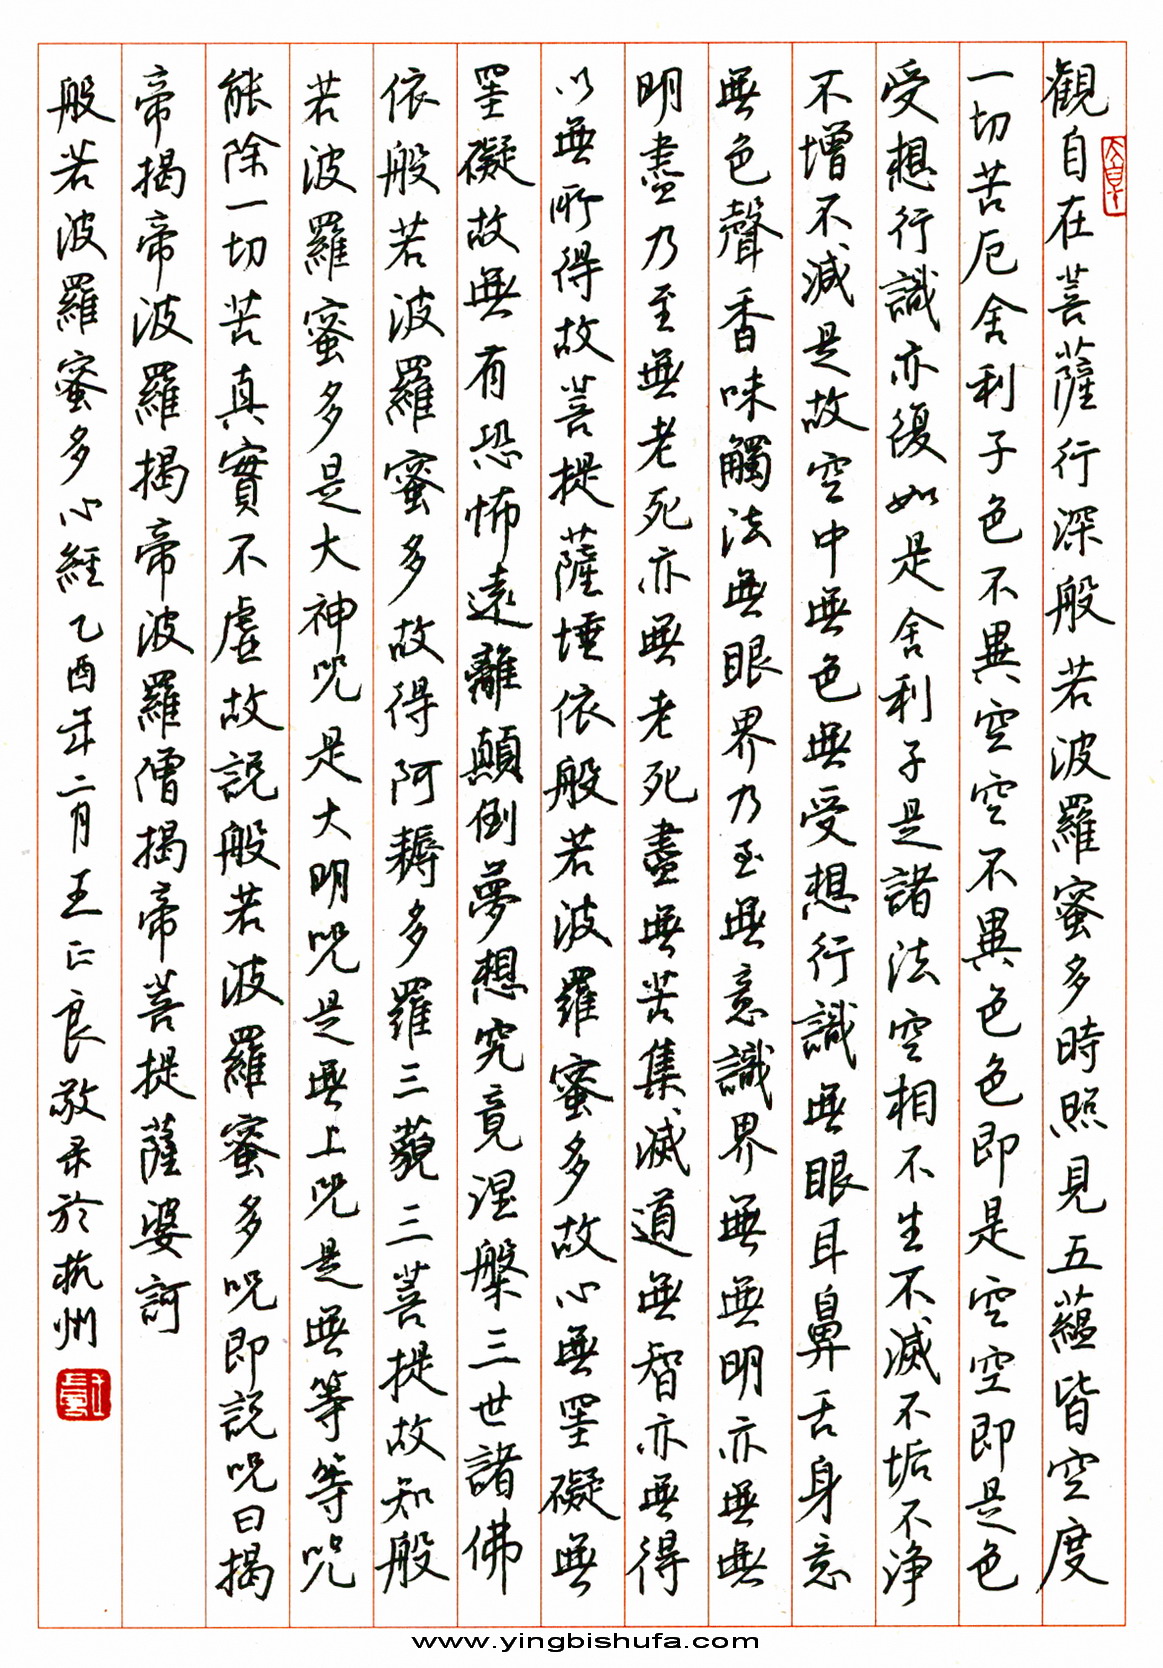 觀自在菩薩行深般若波羅蜜多時照見五蘊皆空度
一切苦厄舍利子色不異空空不異色色即是空空即是色
受想行識亦復如是舍利子是諸法空相不生不滅不垢不净
不增不減是故空中無色無受想行識無眼耳鼻舌身意
無色聲香味觸法無眼界乃至無意識界無無明亦無無
明盡乃至無老死亦無老死盡無苦集滅道無智亦無得
以無所得故菩提薩埵依般若波羅蜜多故心無罣礙無
罣礙故無有恐怖遠離顛倒夢想究竟涅槃三世諸佛
依般若波羅蜜多故得阿耨多羅三藐三菩提故知般
若波羅蜜多是大神咒是大明咒是無上咒是無等等咒
能除一切苦真實不虛故説般若波羅蜜多咒即説咒曰揭
帝揭帝波羅揭帝波羅僧揭帝菩提薩婆訶
般若波羅蜜多心經乙酉年二月王正良敬录於杭州
www.yingbishufa.com